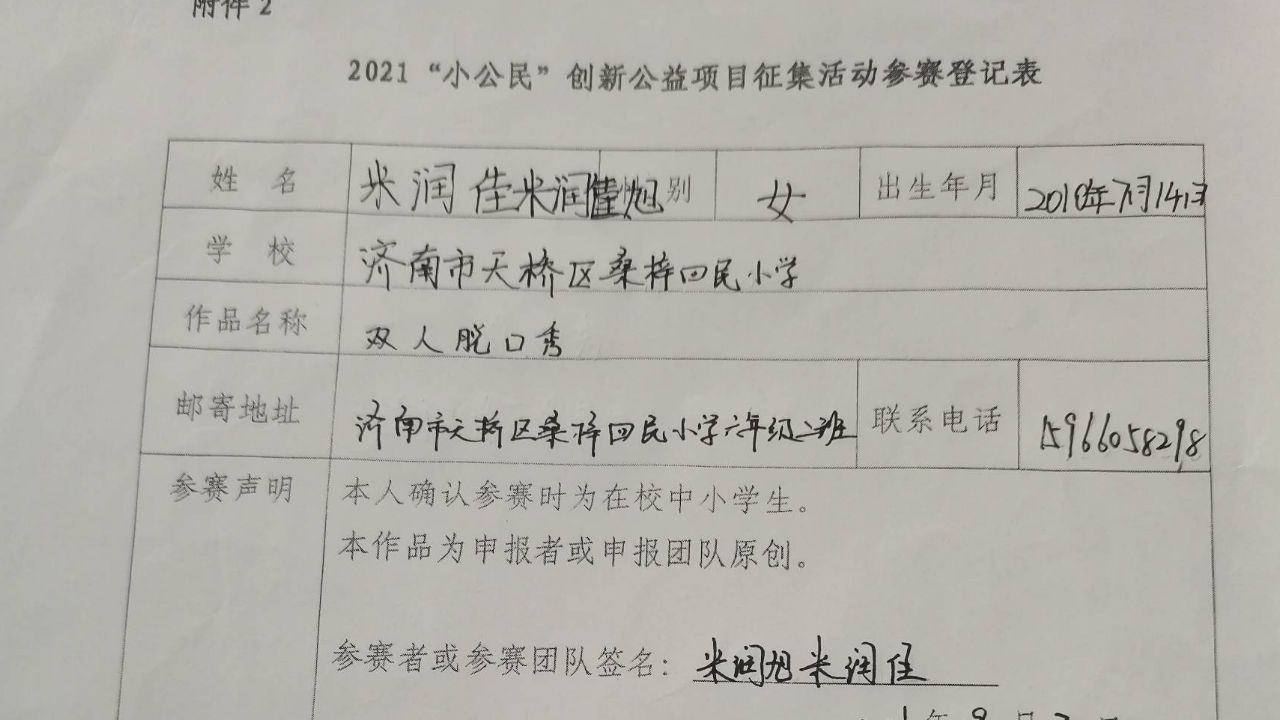 附件2
2021“小公民”创新公益项目征集活动参赛登记表
姓 名 米润佳米润旭 别 女 出生年月 2010年7月14日
学 校 济南市天桥区桑梓回民小学
作品名称 双人脱口秀
邮寄地址 济南市天桥区桑梓回民小学六年级二班 联系电话 15966058298
参赛声明 本人确认参赛时为在校中小学生。
本作品为申报者或申报团队原创。
参赛者或参赛团队签名：米润旭米润佳
年9月 日